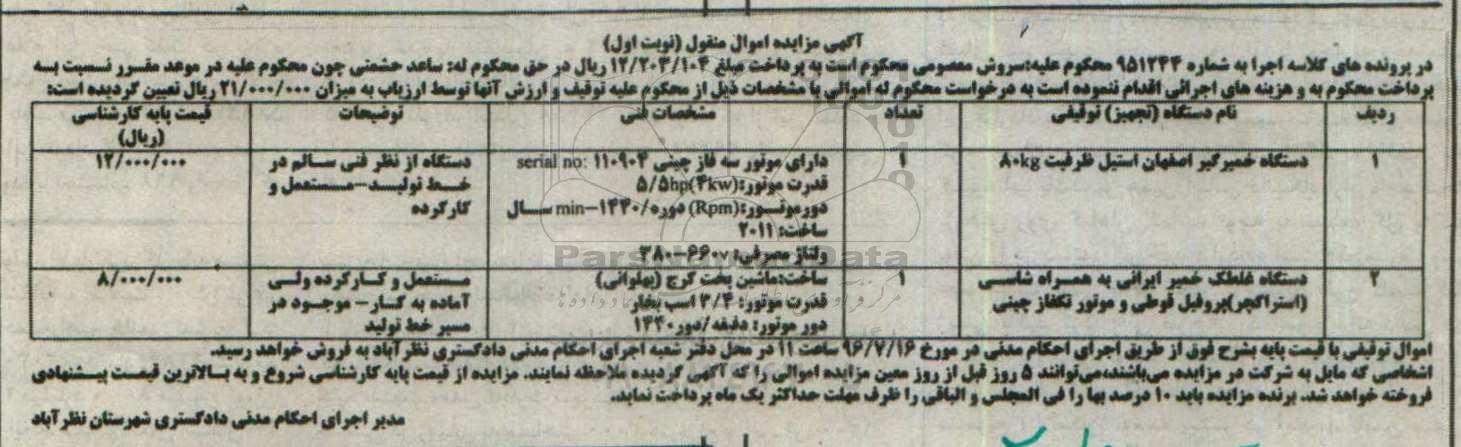 آگهی مزایده اموال منقول (نوبت اول)
در پرونده های کلاسه اجرا به شماره ۹۵۱۲۴۴ محکوم علیه:سروش معصومی محکوم است به پرداخت مبلغ ۱۲/۲۰۳/۱۰۴ ریال در حق محکوم له: ساعد حشمتی چون محکوم علیه در موعد مقرر نسبت به
پرداخت محکوم به و هزینه های اجرائی اقدام ننموده است به درخواست محکوم له اموالی با مشخصات ذیل از محکوم علیه توقیف و ارزش آنها توسط ارزیاب به میزان ۲۱/۰۰۰/۰۰۰ ریال تعیین گردیده است:
ردیف نام دستگاه (تجهیز) توقیفی تعداد مشخصات فنی توضیحات قیمت پایه کارشناسی
(ریال)
۱ دستگاه خمیرگیر اصفهان استیل ظرفیت ۸۰kg ۱ دارای موتور سه فاز چینی serial no: ۱۱۰۹۰۴ دستگاه از نظر فنی سالم در ۱۲/۰۰۰/۰۰۰
قدرت موتور:۵/۵hp(۴kw) خط تولید–مستعمل و
دورموتور:(Rpm) دوره/۱۴۴۰–min سال کارکرده
ساخت: ۲۰۱۱
ولتاژ مصرفی: ۳۸۰–۶۶۰v
۲ دستگاه غلطک خمیر ایرانی به همراه شاسی ۱ ساخت:ماشین پخت کرج (پهلوانی) مستعمل و کارکرده ولی ۸/۰۰۰/۰۰۰
(استراکچر)پروفیل قوطی و موتور تکفاز چینی قدرت موتور: ۳/۴ اسب بخار آماده به کار– موجود در
دور موتور: دقیقه/دور۱۴۴۰ مسیر خط تولید
اموال توقیفی با قیمت پایه بشرح فوق از طریق اجرای احکام مدنی در مورخ ۹۶/۷/۱۶ ساعت ۱۱ در محل دفتر شعبه اجرای احکام مدنی دادگستری نظرآباد به فروش خواهد رسید.
اشخاصی که مایل به شرکت در مزایده می‌باشند،می‌توانند ۵ روز قبل از روز معین مزایده اموالی را که آگهی گردیده ملاحظه نمایند. مزایده از قیمت پایه کارشناسی شروع و به بالاترین قیمت پیشنهادی
فروخته خواهد شد. برنده مزایده باید ۱۰ درصد بها را فی المجلس و الباقی را ظرف مهلت حداکثر یک ماه پرداخت نماید.
مدیر اجرای احکام مدنی دادگستری شهرستان نظرآباد